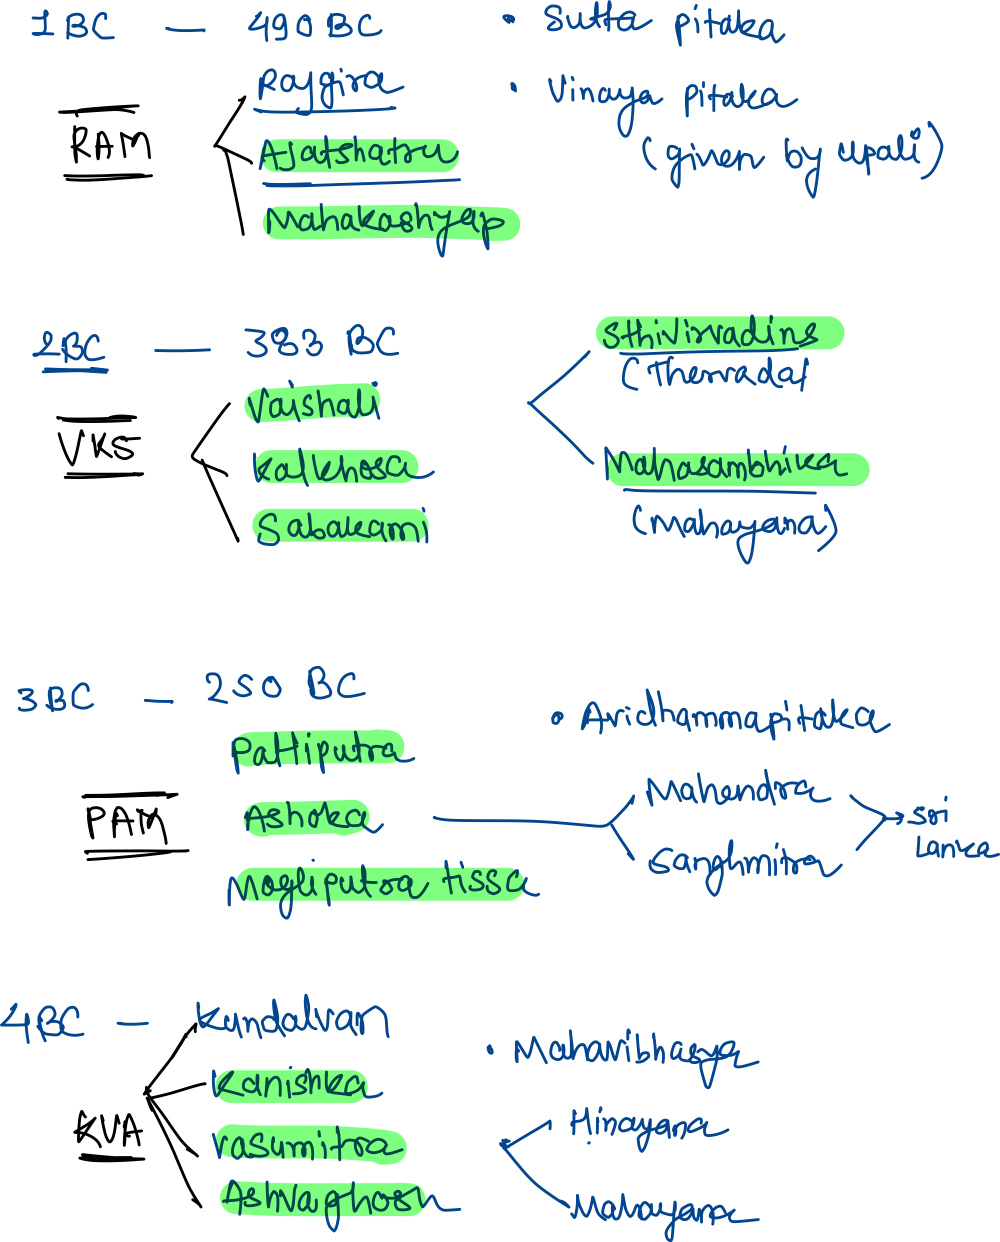 1 BC — 490 BC
Rajgira
RAM
Ajatshatru
Mahakashyap
• Sutta pitaka
• Vinaya pitaka
(given by Upali)
2BC — 383 BC
Vaishali
VKS
Kalkhosa
Sabakami
Sthivirvadins
(Thervada)
Mahasambhika
(Mahayana)
3BC — 250 BC
Patliputra
PAM
Ashoka
Mogliputra tissa
• Avidhammapitaka
Mahendra
Sanghmitra
Sri
Lanka
4BC — Kundalvan
Kanishka
KVA
Vasumitra
Ashvaghosh
• Mahavibhasya
Hinayana
Mahayana